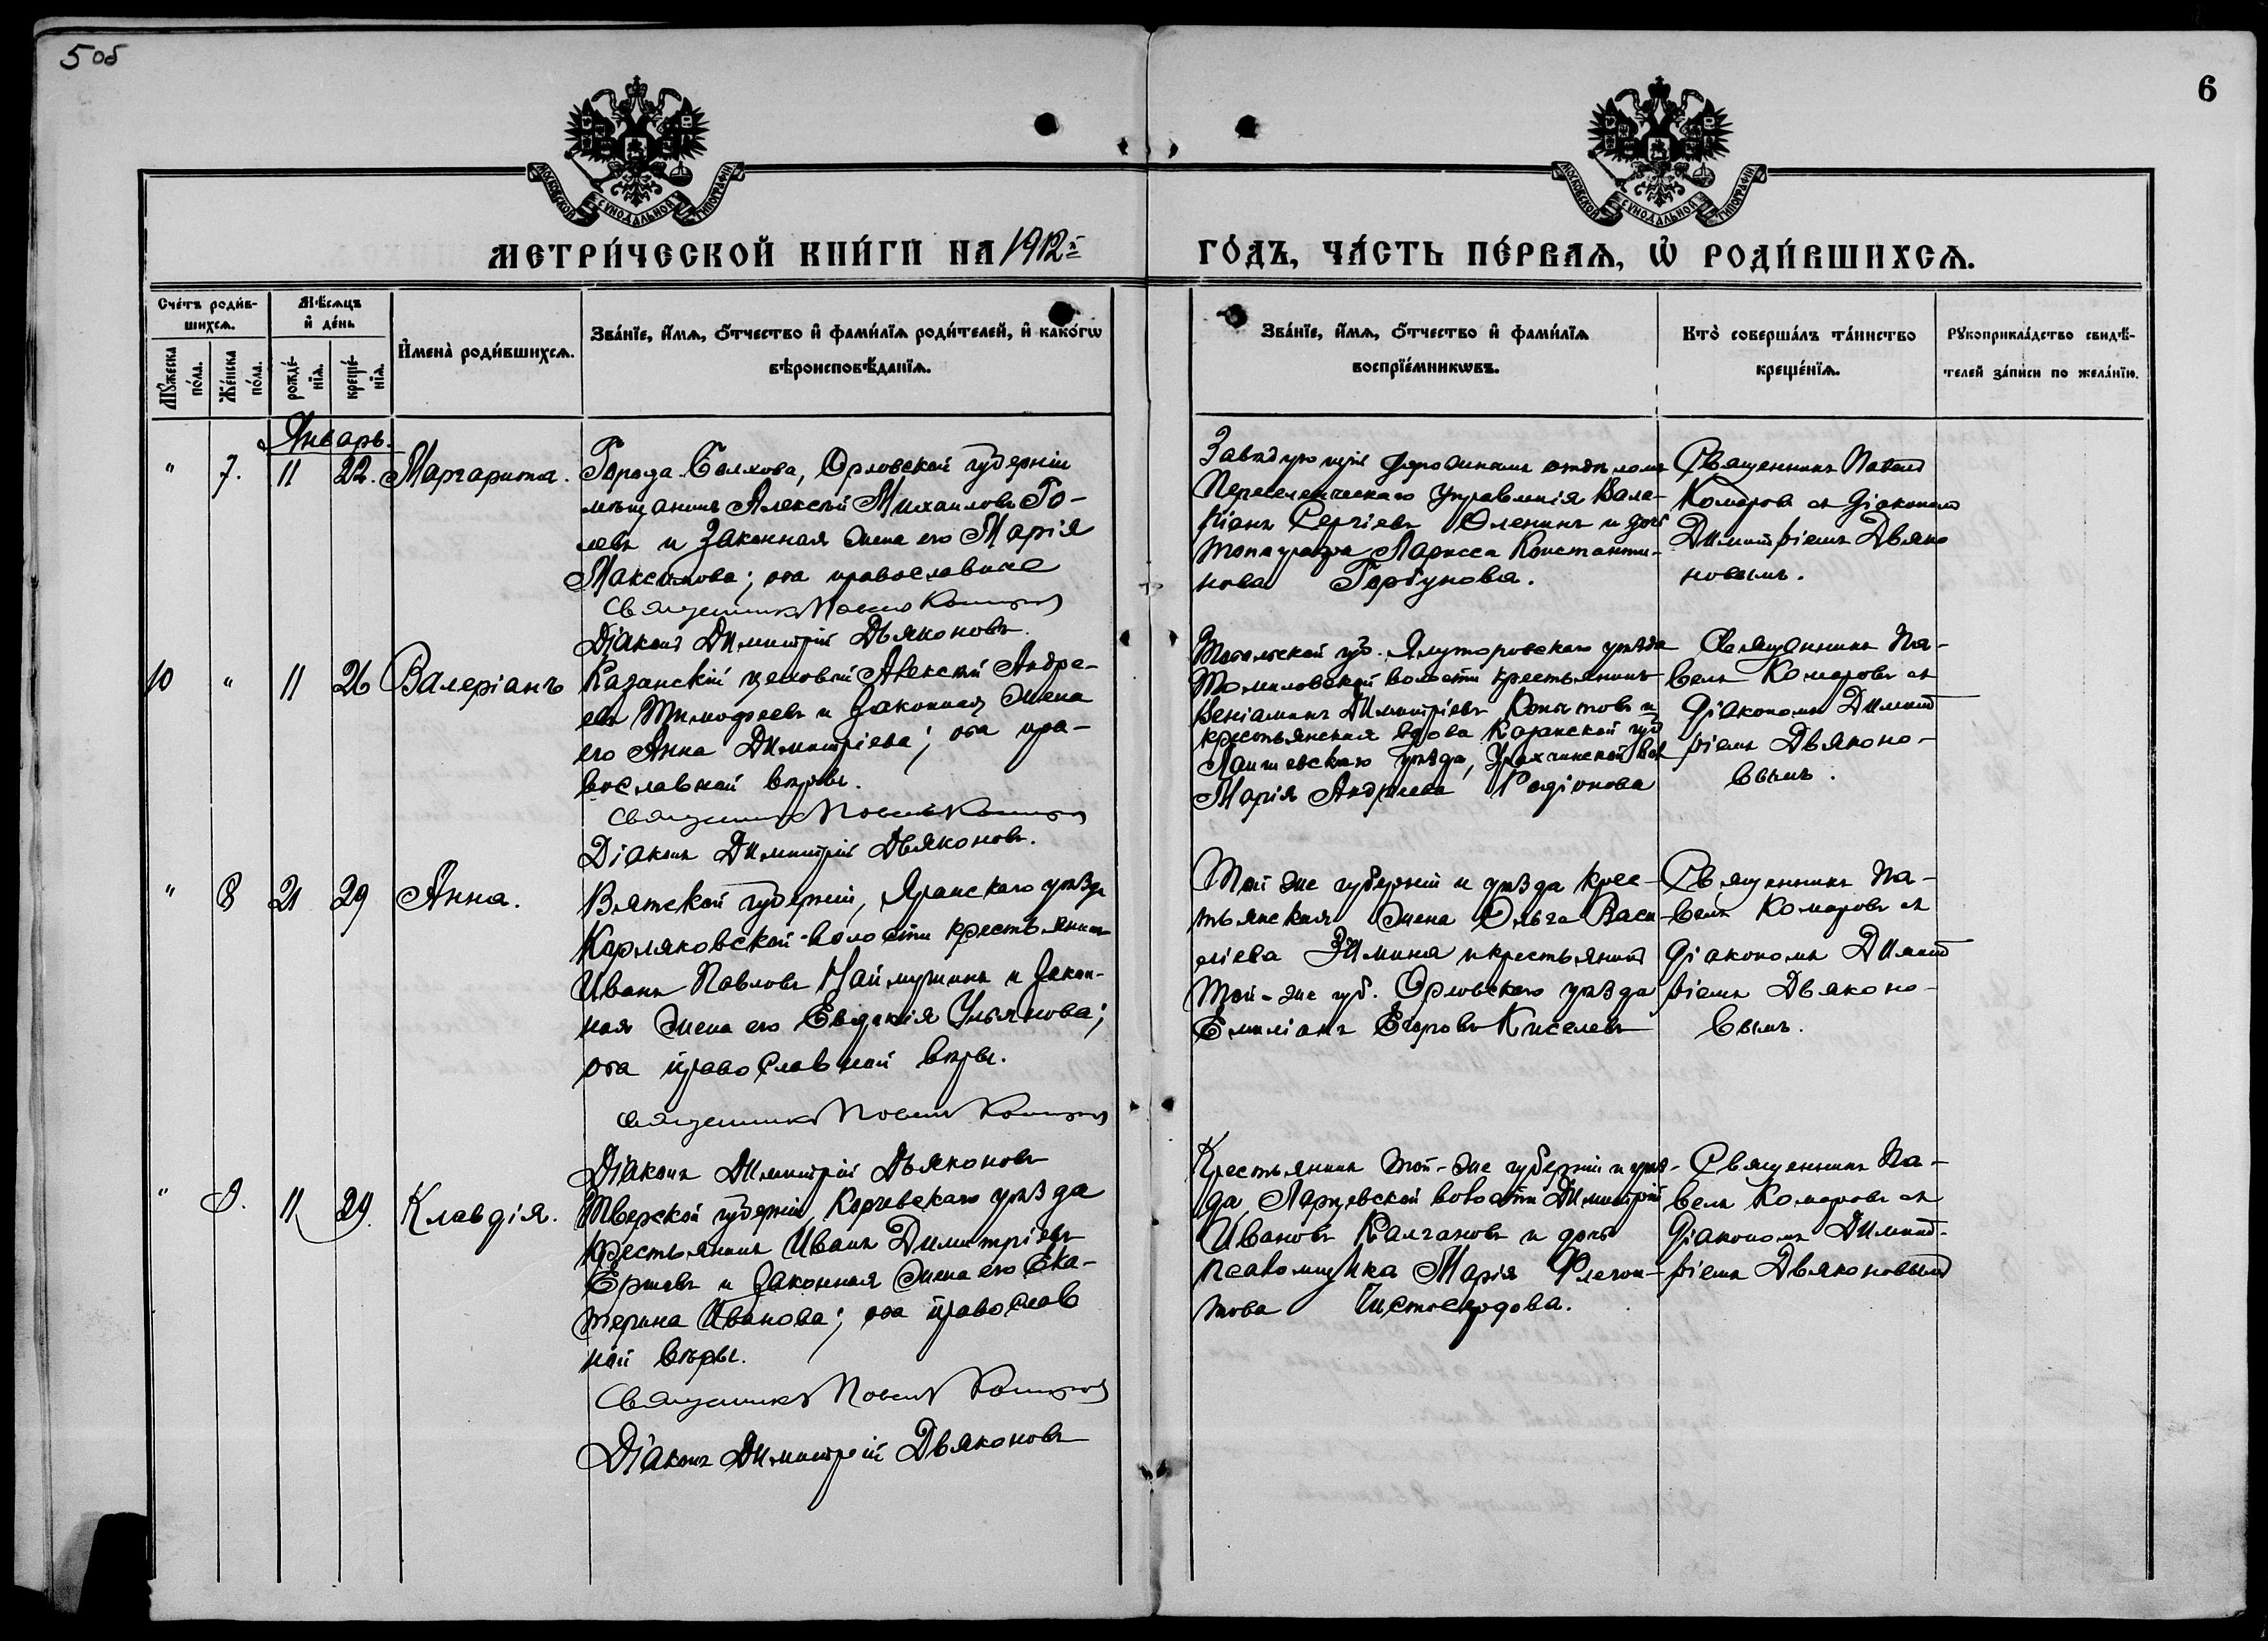 5 об
6
МОСКОВСКОЙ СѴНОДАЛЬНОЙ ТИПОГРАФІИ
МОСКОВСКОЙ СѴНОДАЛЬНОЙ ТИПОГРАФІИ
МЕТРИ́ЧЕСКОЙ КНИ́ГИ НА 1912 й
ГО́ДЪ, ЧА́СТЬ ПЕ́РВАѦ, Ѡ҆ РОДИ́ВШИХСѦ.
Сче́тъ роди́в-
шихсѧ.
Мѣ́сѧцъ
и҆ де́нь
Мꙋ́жеска
по́ла.
Же́нска
по́ла.
рожде́-
нїѧ.
креще́-
нїѧ.
И҆мена̀ роди́вшихсѧ.
Зва́нїе, и҆́мѧ, ѻ҆́тчество и҆ фами́лїѧ роди́телей, и҆ како́гѡ
вѣроисповѣ́данїѧ.
Зва́нїе, и҆́мѧ, ѻ҆́тчество и҆ фами́лїѧ
воспрїе́мникѡвъ.
Кто̀ соверша́лъ та́инство
креще́нїѧ.
Рꙋкоприкла́дство свидѣ́-
телей за́писи по жела́нїю.
Январь.
" 7. 11 22. Маргарита.
Города Болхова, Орловской губерніи
мѣщанинъ Алексѣй Михаиловъ Го-
левъ и законная жена его Марія
Максимова; оба православные
Священникъ Павелъ Комаровъ
Діаконъ Димитрій Дьяконовъ.
Завѣдующій отдѣломъ
Переселенческаго Управленія Вале-
ріанъ Сергіевъ Оленинъ и дочь
топографа Лариса Константи-
нова Горбунова.
Священникъ Павелъ
Комаровъ съ діакономъ
Димитріемъ Дьяко
новымъ.
10 " 11 26 Валеріанъ
Казанскій цеховой Алексѣй Андре-
евъ Тимофеевъ и законная жена
его Анна Димитріева; оба пра-
вославной вѣры.
Священникъ Павелъ Комаровъ
Діаконъ Димитрій Дьяконовъ.
Тобольской губ. Ялуторовскаго уѣзда
Томиловской волости крестьянинъ
Веніаминъ Димитріевъ и
крестьянская вдова Казанской губ
Лаишевскаго уѣзда, вол
Марія Андреева Родіонова
Священникъ Па-
велъ Комаровъ съ
діакономъ Димит
ріемъ Дьяконо-
вымъ.
" 8 21 29 Анна.
Вятской губерніи, Яранскаго уѣзда
Карляковской волости крестьянинъ
Иванъ Павловъ Наймушинъ и закон-
ная жена его Евдокія Ульянова;
оба православной вѣры.
Священникъ Павелъ Комаровъ
Діаконъ Димитрій Дьяконовъ
Той же губерніи и уѣзда крес-
тьянская жена Ольга Васи-
лiева Зимина и крестьянинъ
той-же губ. Орловскаго уѣзда
Емиліанъ Егоровъ Киселевъ
Священникъ Па-
велъ Комаровъ съ
діакономъ Димит
ріемъ Дьяконо-
вымъ.
" 9. 11 29. Клавдія.
Тверской губерніи, Корчевскаго уѣзда
крестьянинъ Иванъ Димитріевъ
Ершовъ и законная жена его Ека-
терина Иванова; оба православ
ной вѣры.
Священникъ Павелъ Комаровъ
Діаконъ Димитрій Дьяконовъ
Крестьянинъ той-же губерніи и уѣз-
да, Ларцевской волости Димитрій
Ивановъ Калгановъ и дочь
псаломщика Марія Флегон-
това Чистосердова.
Священникъ Па-
велъ Комаровъ съ
діакономъ Димит-
ріемъ Дьяконовымъ